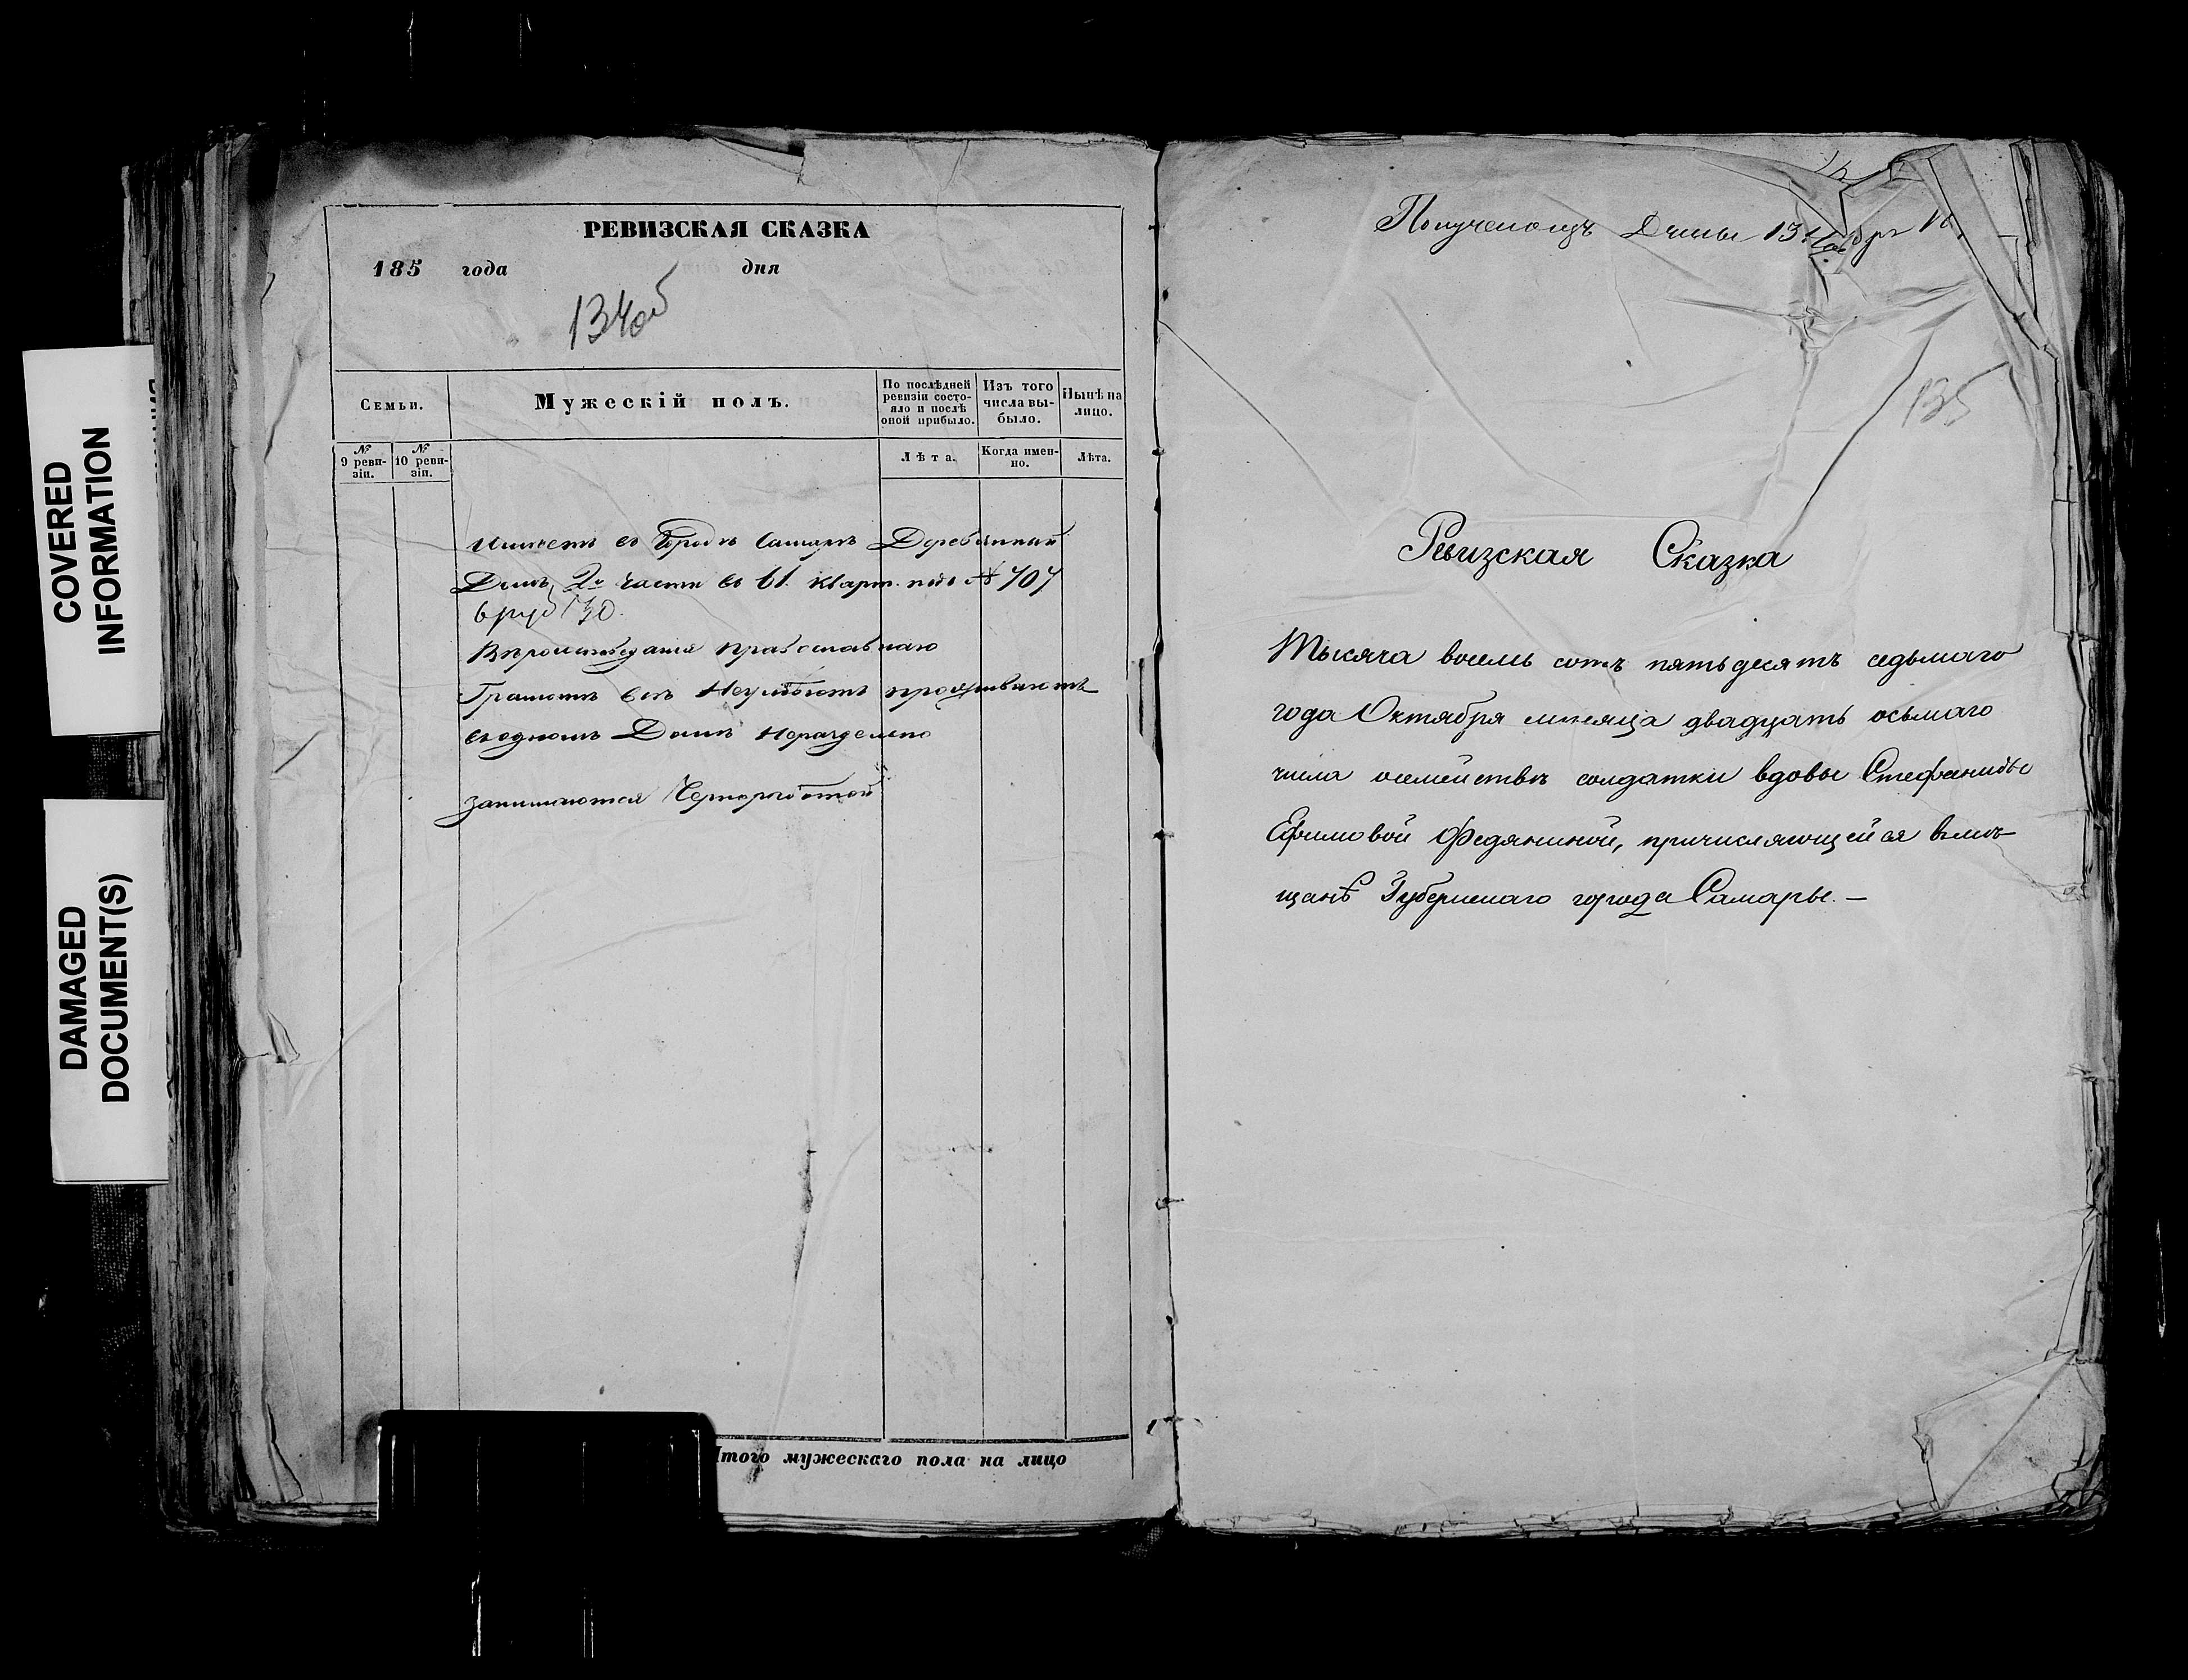 COVERED
INFORMATION
DAMAGED
DOCUMENT(S)
РЕВИЗСКАЯ СКАЗКА
185 года дня
134об
Семьи.
Мужескій полъ.
По послѣдней
ревизіи состо-
яло и послѣ
оной прибыло.
Изъ того
числа вы-
было.
Нынѣ на
лицо.
№
9 реви-
зіи.
№
10 реви-
зіи.
Лѣта.
Когда имен-
но.
Лѣта.
имѣетъ въ Городѣ Самарѣ Деревянный
Домъ 2й части въ 61. кварт. подъ № 707
Вѣроисповѣданія православнаго
Грамотѣ всѣ Неумѣютъ проживаютъ
въ одномъ Домѣ Нераздельно
занимаются Чернорабочей
Итого мужескаго пола на лицо
13
135
Ревизская Сказка
Тысяча восемь сотъ пятьдесятъ седьмаго
года Октября мѣсяца двадцать осьмаго
числа осемействѣ солдатки вдовы Стефаниды
Ефимовой Федяниной, причисляющейся вмѣ-
щанѣ Губернскаго города Самары. —